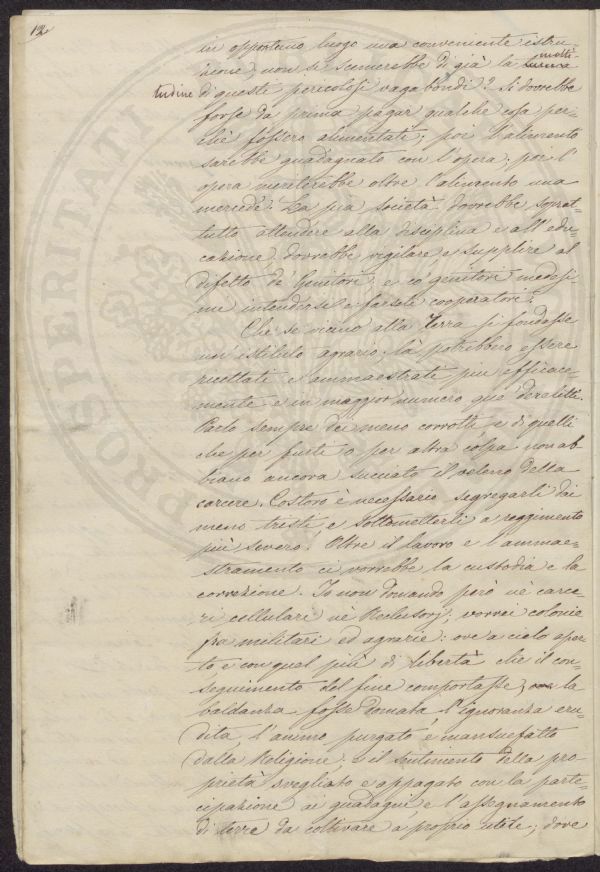 12
in opportuno luogo una conveniente istru-
zione, non si scemerebbe di già la molti-
tudine di questi pericolosi vagabondi? Si dovrebbe
forse da prima pagar qualche cosa per-
chè fossero alimentati; poi l'alimento
sarebbe guadagnato con l'opera; poi l'
opera meriterebbe oltre l'alimento una
mercede. La pia società dovrebbe soprat-
tutto attendere alla disciplina e all'edu-
cazione, dovrebbe vigilare e supplire al
difetto de' Genitori, e co' genitori medesi-
mi intendersi e farseli cooperatori.
Che se vicino alla Terra si fondasse
un'istituto agrario, là potrebbero essere
ricettati e ammaestrati più efficace-
mente e in maggior numero que' derelitti.
Parlo sempre dei meno corrotti e di quelli
che per furti o per altra colpa non ab
biano ancora succiato il veleno della
carcere. Costoro è necessario segregarli dai
meno tristi e sottometterli a reggimento
più severo. Oltre il lavoro e l'ammae-
stramento ci vorrebbe la custodia e la
correzione. Io non domando però nè carce-
ri cellulari nè Reclusorj; vorrei colonie
fra militari ed agrarie: ove a cielo aper
to e con quel più di libertà che il con-
seguimento del fine comportasse, la
baldanza fosse domata l'ignoranza eru-
dita l'animo purgato e mansuefatto
dalla Religione; e il sentimento della pro-
prietà svegliato e appagato con la parte-
cipazione ai guadagni e l'assegnamento
di terre da coltivare a proprio utile; dove
PROSPERITATI